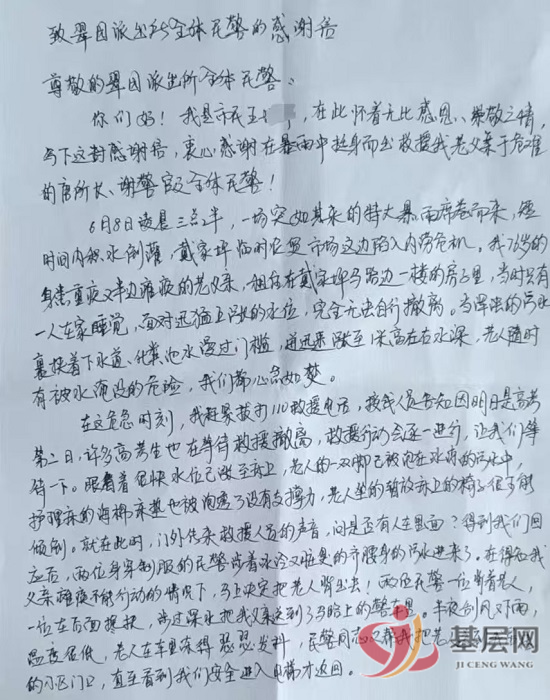 致翠园派出所全体民警的感谢信
尊敬的翠园派出所全体民警：
你们好！我是市民王 ，在此怀着无比感恩、崇敬之情，
写下这封感谢信，衷心感谢在暴雨中挺身而出救援我老父亲于危难
的唐所长、谢警官及全体民警！
6月8日凌晨三点半，一场突如其来的特大暴雨席卷而来，短
时间内积水倒灌，戴家坪临时农贸市场这边陷入内涝危机。我76岁的
身患重疾又半边瘫痪的老父亲，租住在戴家坪马路边一楼的房子里，当时只有
一人在家睡觉，面对迅猛上涨的水位，完全无法自行撤离。当浑浊的污水
裹挟着下水道、化粪池水漫过门槛，迅速涨至1米高左右水深，老人随时
有被水淹没的危险，我们都心急如焚。
在这危急时刻，我赶紧拨打110救援电话，接线人员告知因明日是高考
第二日，许多高考生也在等待救援撤离，救援行动会逐一进行，让我们等
待一下。眼看着很快水位已涨至床上，老人的一双脚已被泡在冰冷的污水中，
护理床的海棉床垫也被泡透了没有支撑力，老人坐的暂放床上的椅子很可能
倾倒。就在此时，门外传来救援人员的声音，问是否有人在里面？得到我们回
应后，两位身穿制服的民警淌着冰冷又脏臭的齐腰身的污水进来了，在得知我
父亲瘫痪不能行动的情况下，马上决定把老人背出去！两位民警一位背着老人，
一位在后面提扶，淌过深水把我父亲送到了马路上的警车里。半夜刮风下雨，
温度很低，老人在车里冻得瑟瑟发抖，民警同志又帮我把老
的小区门口，直至看到我们安全进入电梯才返回。
基层网
JI CENG WANG